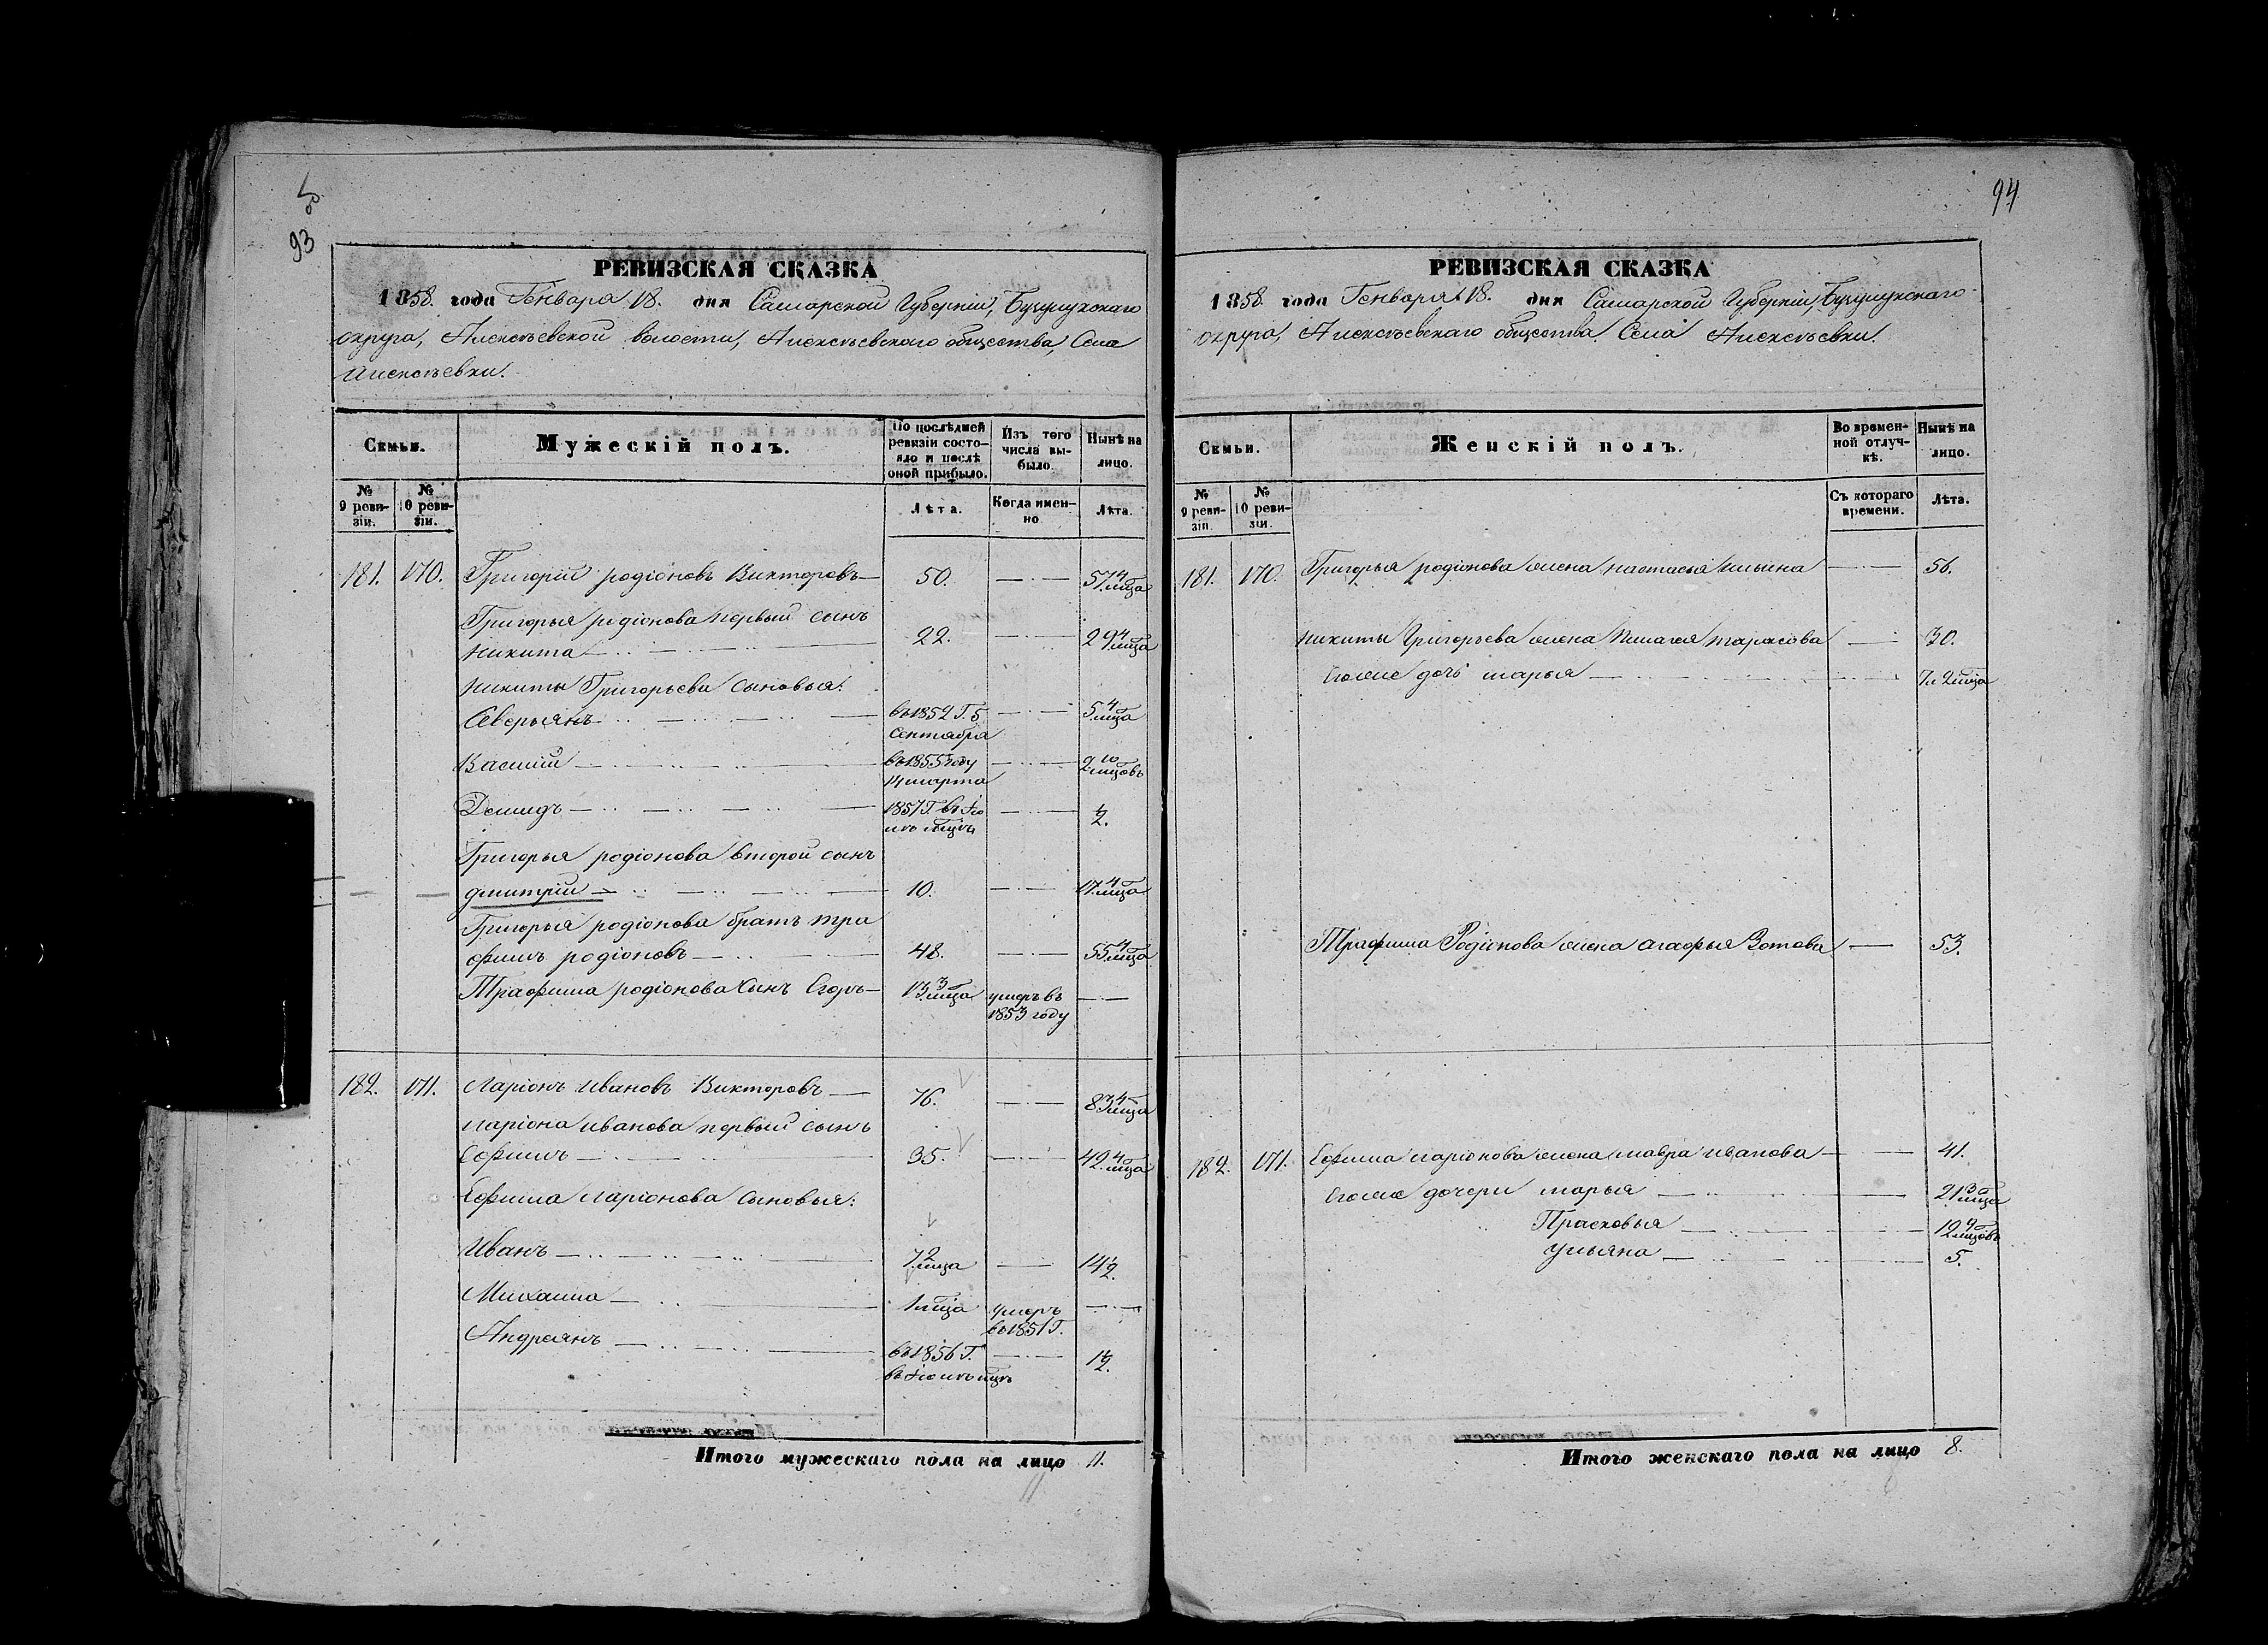 93
РЕВИЗСКАЯ СКАЗКА
1858. года Генваря 18. дня Самарской Губерніи, Бузулукскаго
округа, Алексѣевской волости, Алексѣевскаго общества, Села
Алексѣевки.
Семьи.
Мужескій полъ.
По послѣдней ревизіи состояло и послѣ оной прибыло.
Изъ того числа выбыло.
Нынѣ на лицо.
№ 9 ревизіи.
№ 10 ревизіи.
Лѣта.
Когда именно
Лѣта.
181. 170. Григорій родіоновъ Викторовъ 50. 57 4 мца
Григорья родіонова первый сынъ
никита 22. 29 4 мца
никиты Григорьева сыновья:
Северьянъ въ 1852 Г. 5 Сентября 5 4 мца
Василій въ 1855 году 14 марта 2 10 мцовъ
Демидъ 1857 Г. въ Іюлѣ мцѣ ½.
Григорья родіонова второй сынъ
дмитрій 10. 17 4 мца
Григорья родіонова братъ тра
фимъ родіоновъ 48. 55 4 мца
Трафима родіонова Сынъ Егоръ 13 3 мца умеръ въ 1853 году
182. 171. Ларіонъ ивановъ Викторовъ 76. 83 4 мца
лариона иванова первый сынъ
Ефимъ 35. 42 4 мца
Ефима ларіонова сыновья:
Иванъ 7 2 мца 14½.
Михаила 1 мца умеръ въ 1851 Г.
Андреянъ въ 1856 Г. въ Іюлѣ мцѣ 1½.
Итого мужескаго пола на лицо 11.
94
РЕВИЗСКАЯ СКАЗКА
1858. года Генваря 18. дня Самарской Губерніи, Бузулукскаго
округа, Алексѣевскаго общества Села Алексѣевки.
Семьи.
Женскій полъ.
Во временной отлучкѣ.
Нынѣ на лицо.
№ 9 ревизіи.
№ 10 ревизіи.
Съ котораго времени.
Лѣта.
181. 170. Григорья родіонова жена настасья ильина 56.
никиты Григорьева жена Пилагея тарасова 30.
Ихже дочь марья 7 и 2 мца
Трафима Родіонова жена агафья Зотова 53.
182. 171. Ефима ларіонова жена мавра иванова 41.
Ихже дочери марья 21 3 мца
Прасковья 12 4 мцовъ
ульяна 5.
Итого женскаго пола на лицо 8.